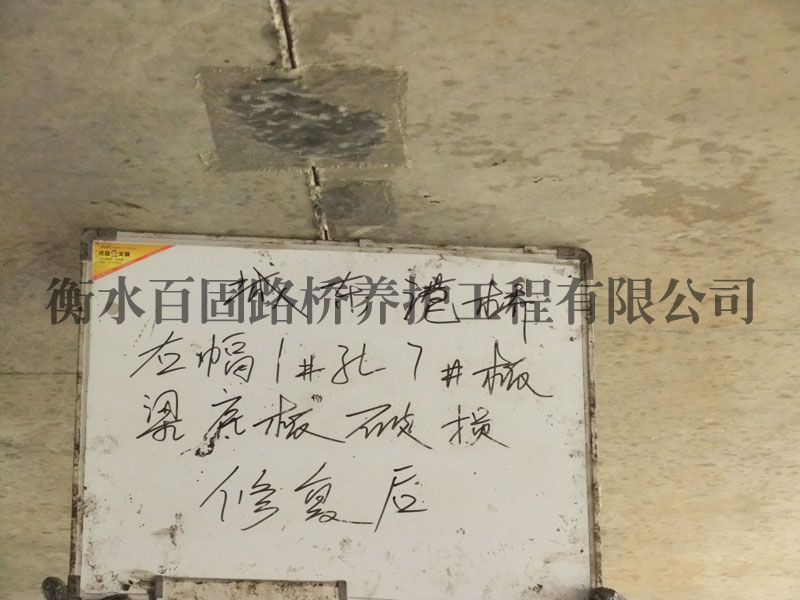 衡水百固路桥养护工程有限公司
港桥
左幅1#孔7#板
梁底板破损
修复后